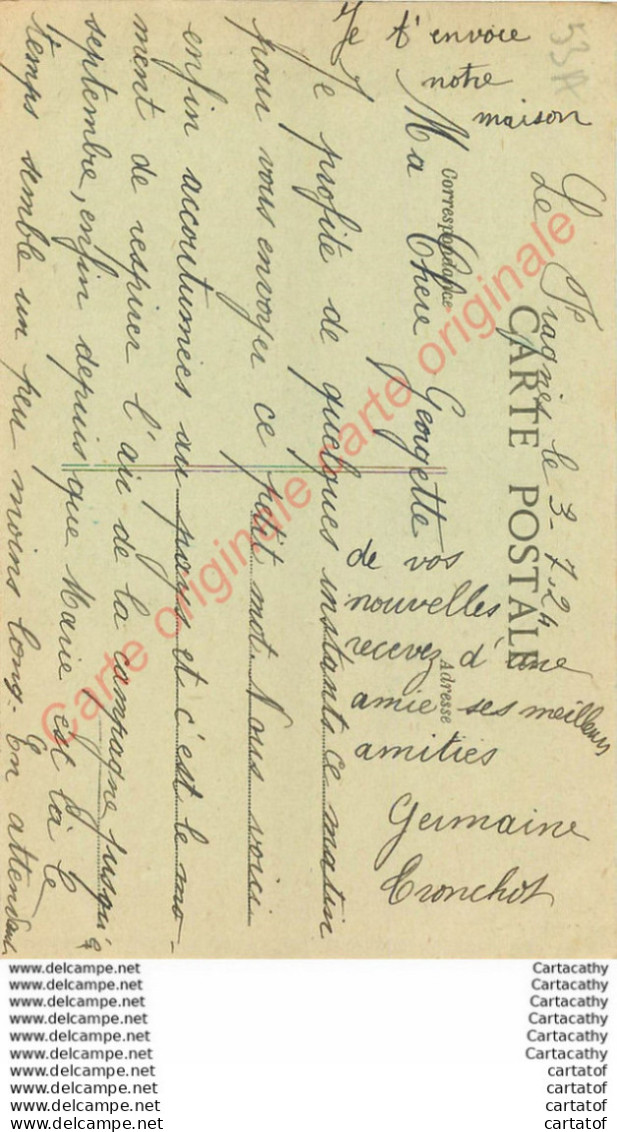 CARTE POSTALE
Correspondance
Adresse
53A
Le 3-7-24
Je t'envoie
notre
maison
Ma Chère Georgette
Je profite de quelques instants ce matin
pour vous envoyer ce petit mot. Nous voici
enfin accoutumées au pays et c'est le mo-
ment de respirer l'air de la campagne jusqu'à
septembre, enfin depuis que Marie est là le
temps semble un peu moins long. En attendant
de vos
nouvelles
recevez d'une
amie ses meilleures
amitiés
Germaine
Tronchot
Carte originale Carte originale
www.delcampe.net Cartacathy
www.delcampe.net Cartacathy
www.delcampe.net Cartacathy
www.delcampe.net Cartacathy
www.delcampe.net Cartacathy
www.delcampe.net Cartacathy
www.delcampe.net cartatof
www.delcampe.net cartatof
www.delcampe.net cartatof
www.delcampe.net cartatof